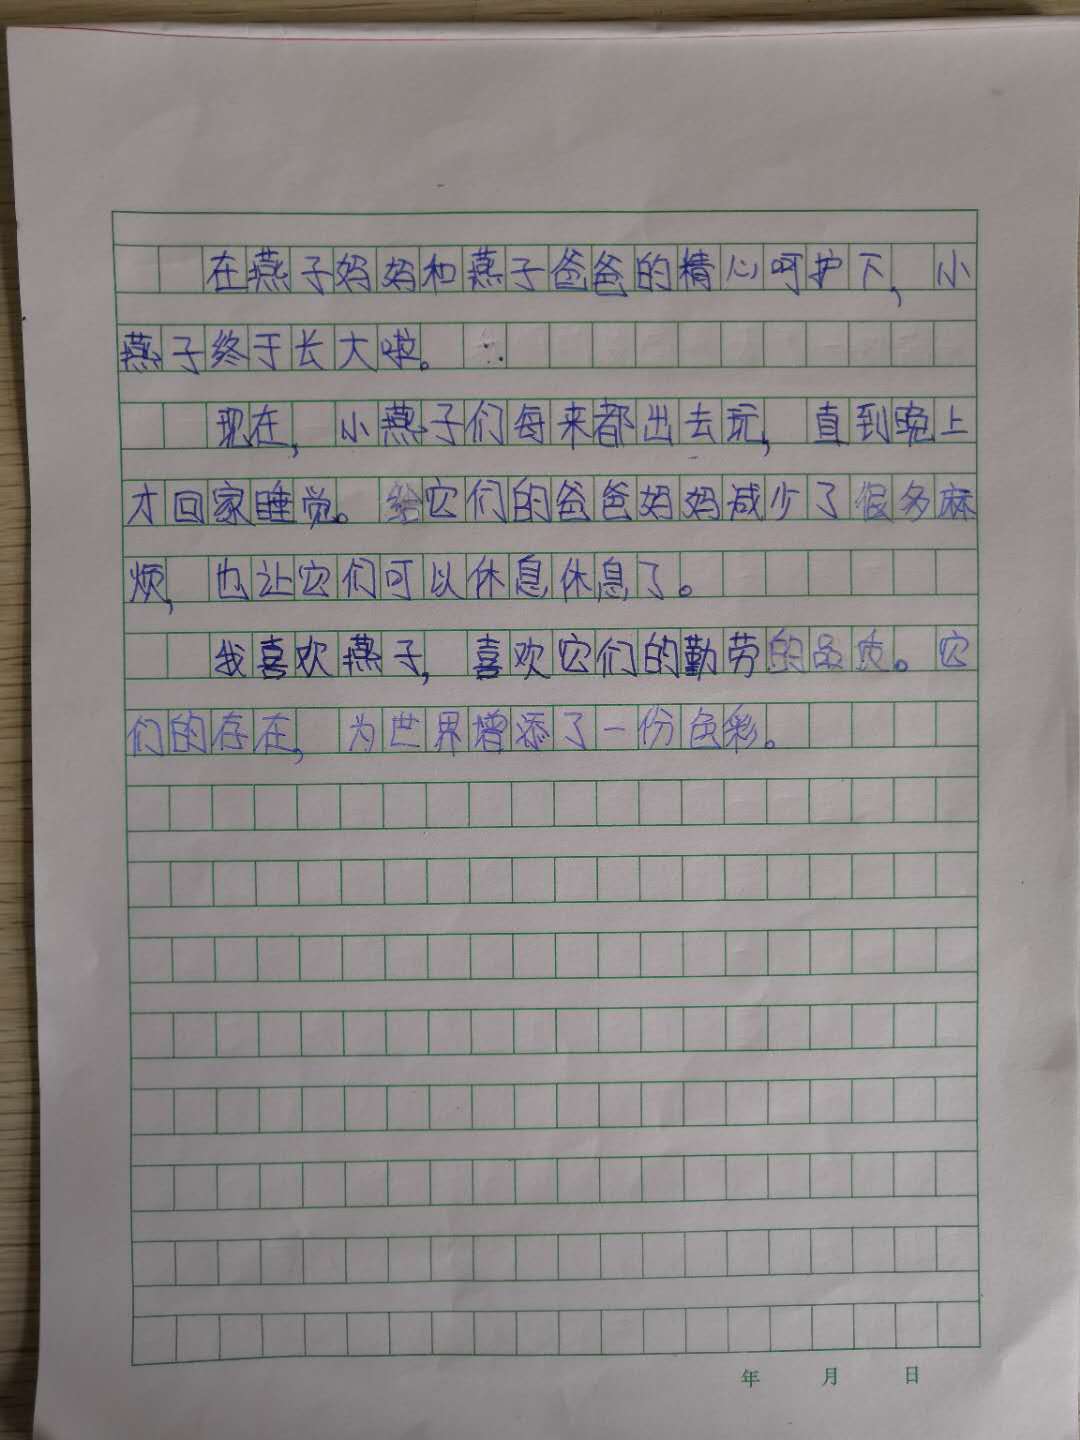 在燕子妈妈和燕子爸爸的精心呵护下,小
燕子终于长大啦。
现在,小燕子们每来都出去玩,直到晚上
才回家睡觉。给它们的爸爸妈妈减少了很多麻
烦,也让它们可以休息休息了。
我喜欢燕子,喜欢它们的勤劳的品质。它
们的存在,为世界增添了一份色彩。
年 月 日